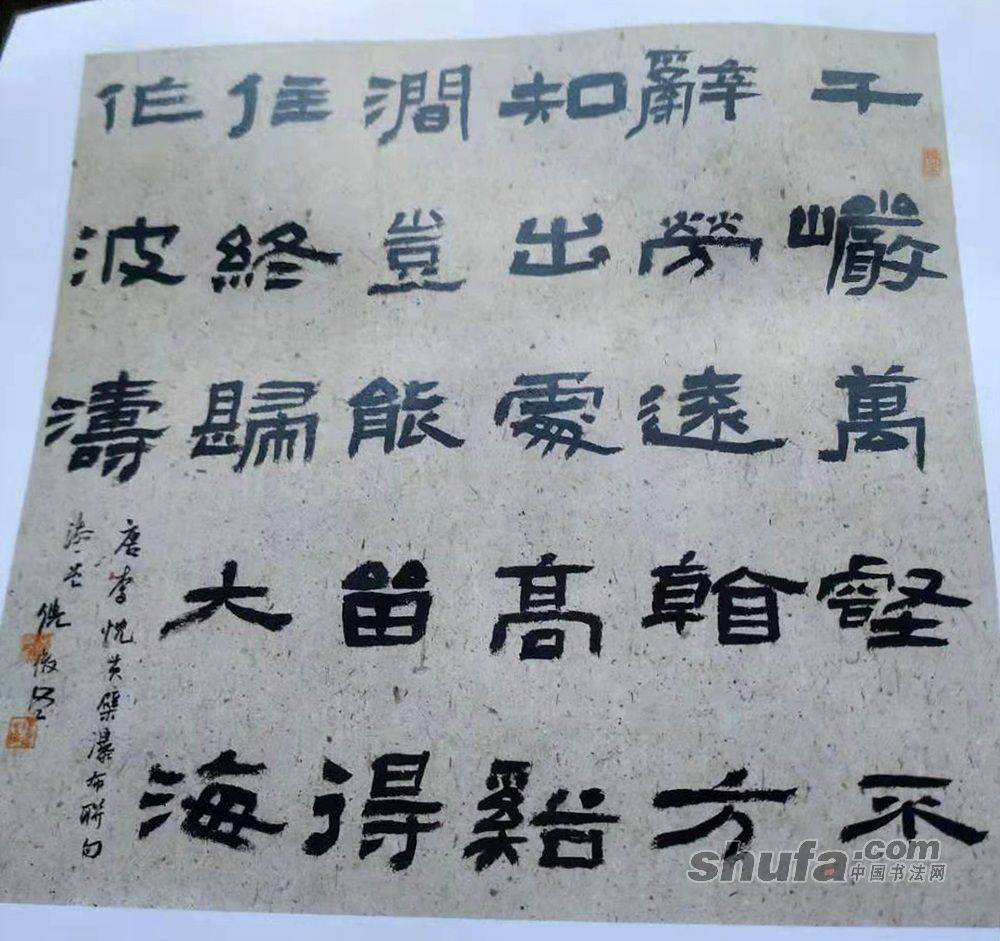 千巖萬壑不
辭勞遠看方
知出處高谿
澗豈能留得
住終歸大海
作波濤
唐李忱黄檗瀑布聯句
shufa.com
中国书法网